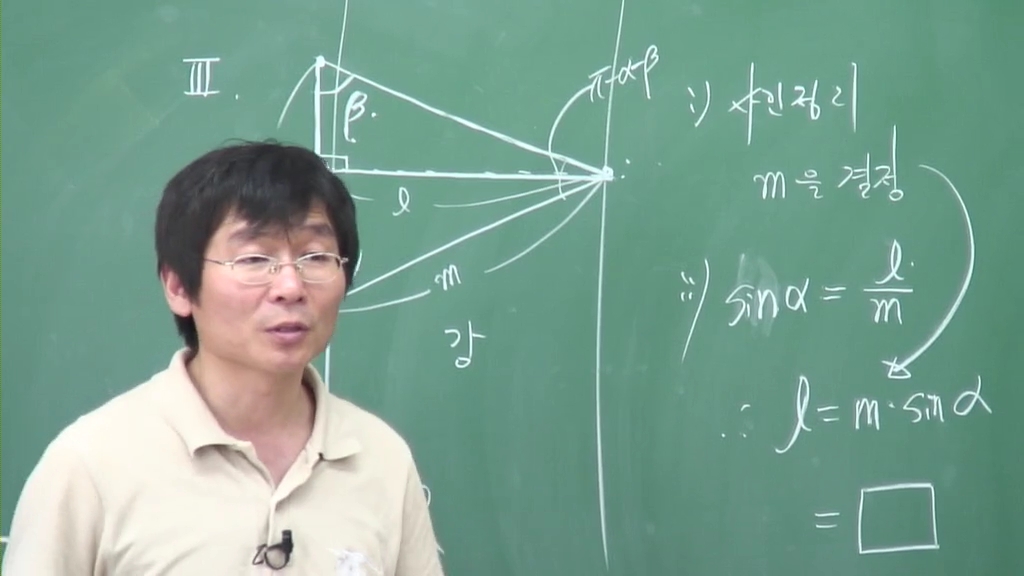 III.
π-α-β
β
l
m
강
i) 사인정리
m을 결정
ii) sinα = l/m
∴ l = m·sinα
= □